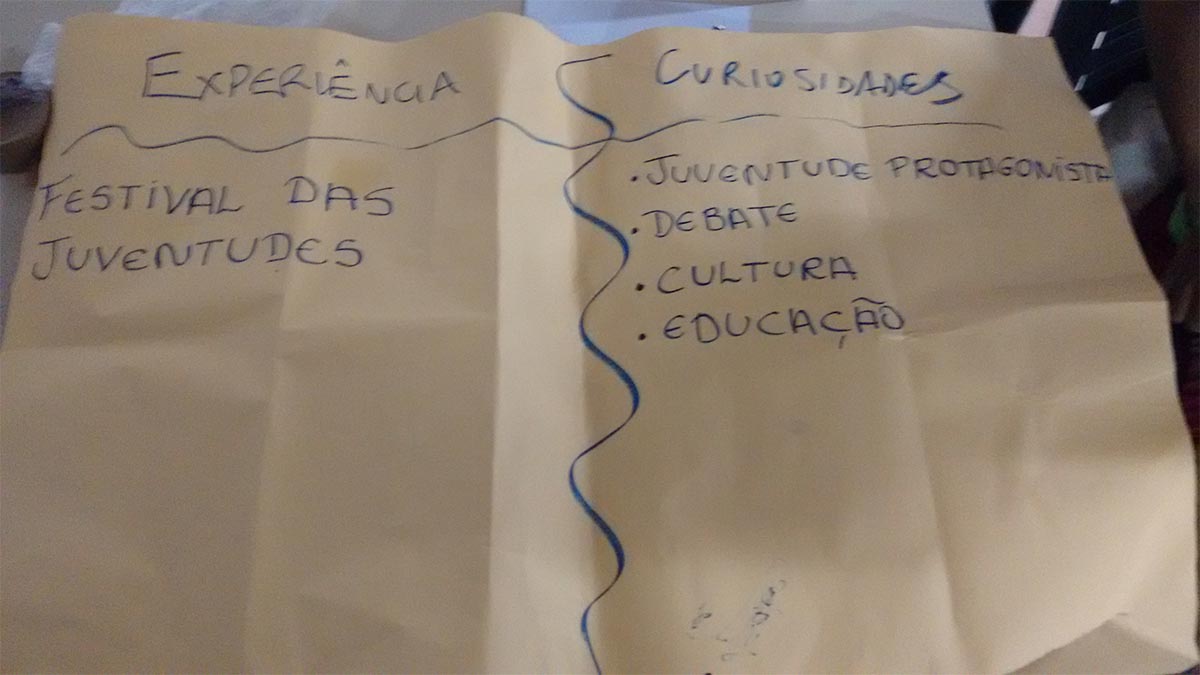 EXPERIÊNCIA
FESTIVAL DAS
JUVENTUDES
CURIOSIDADES
. JUVENTUDE PROTAGONISTA
. DEBATE
. CULTURA
. EDUCAÇÃO